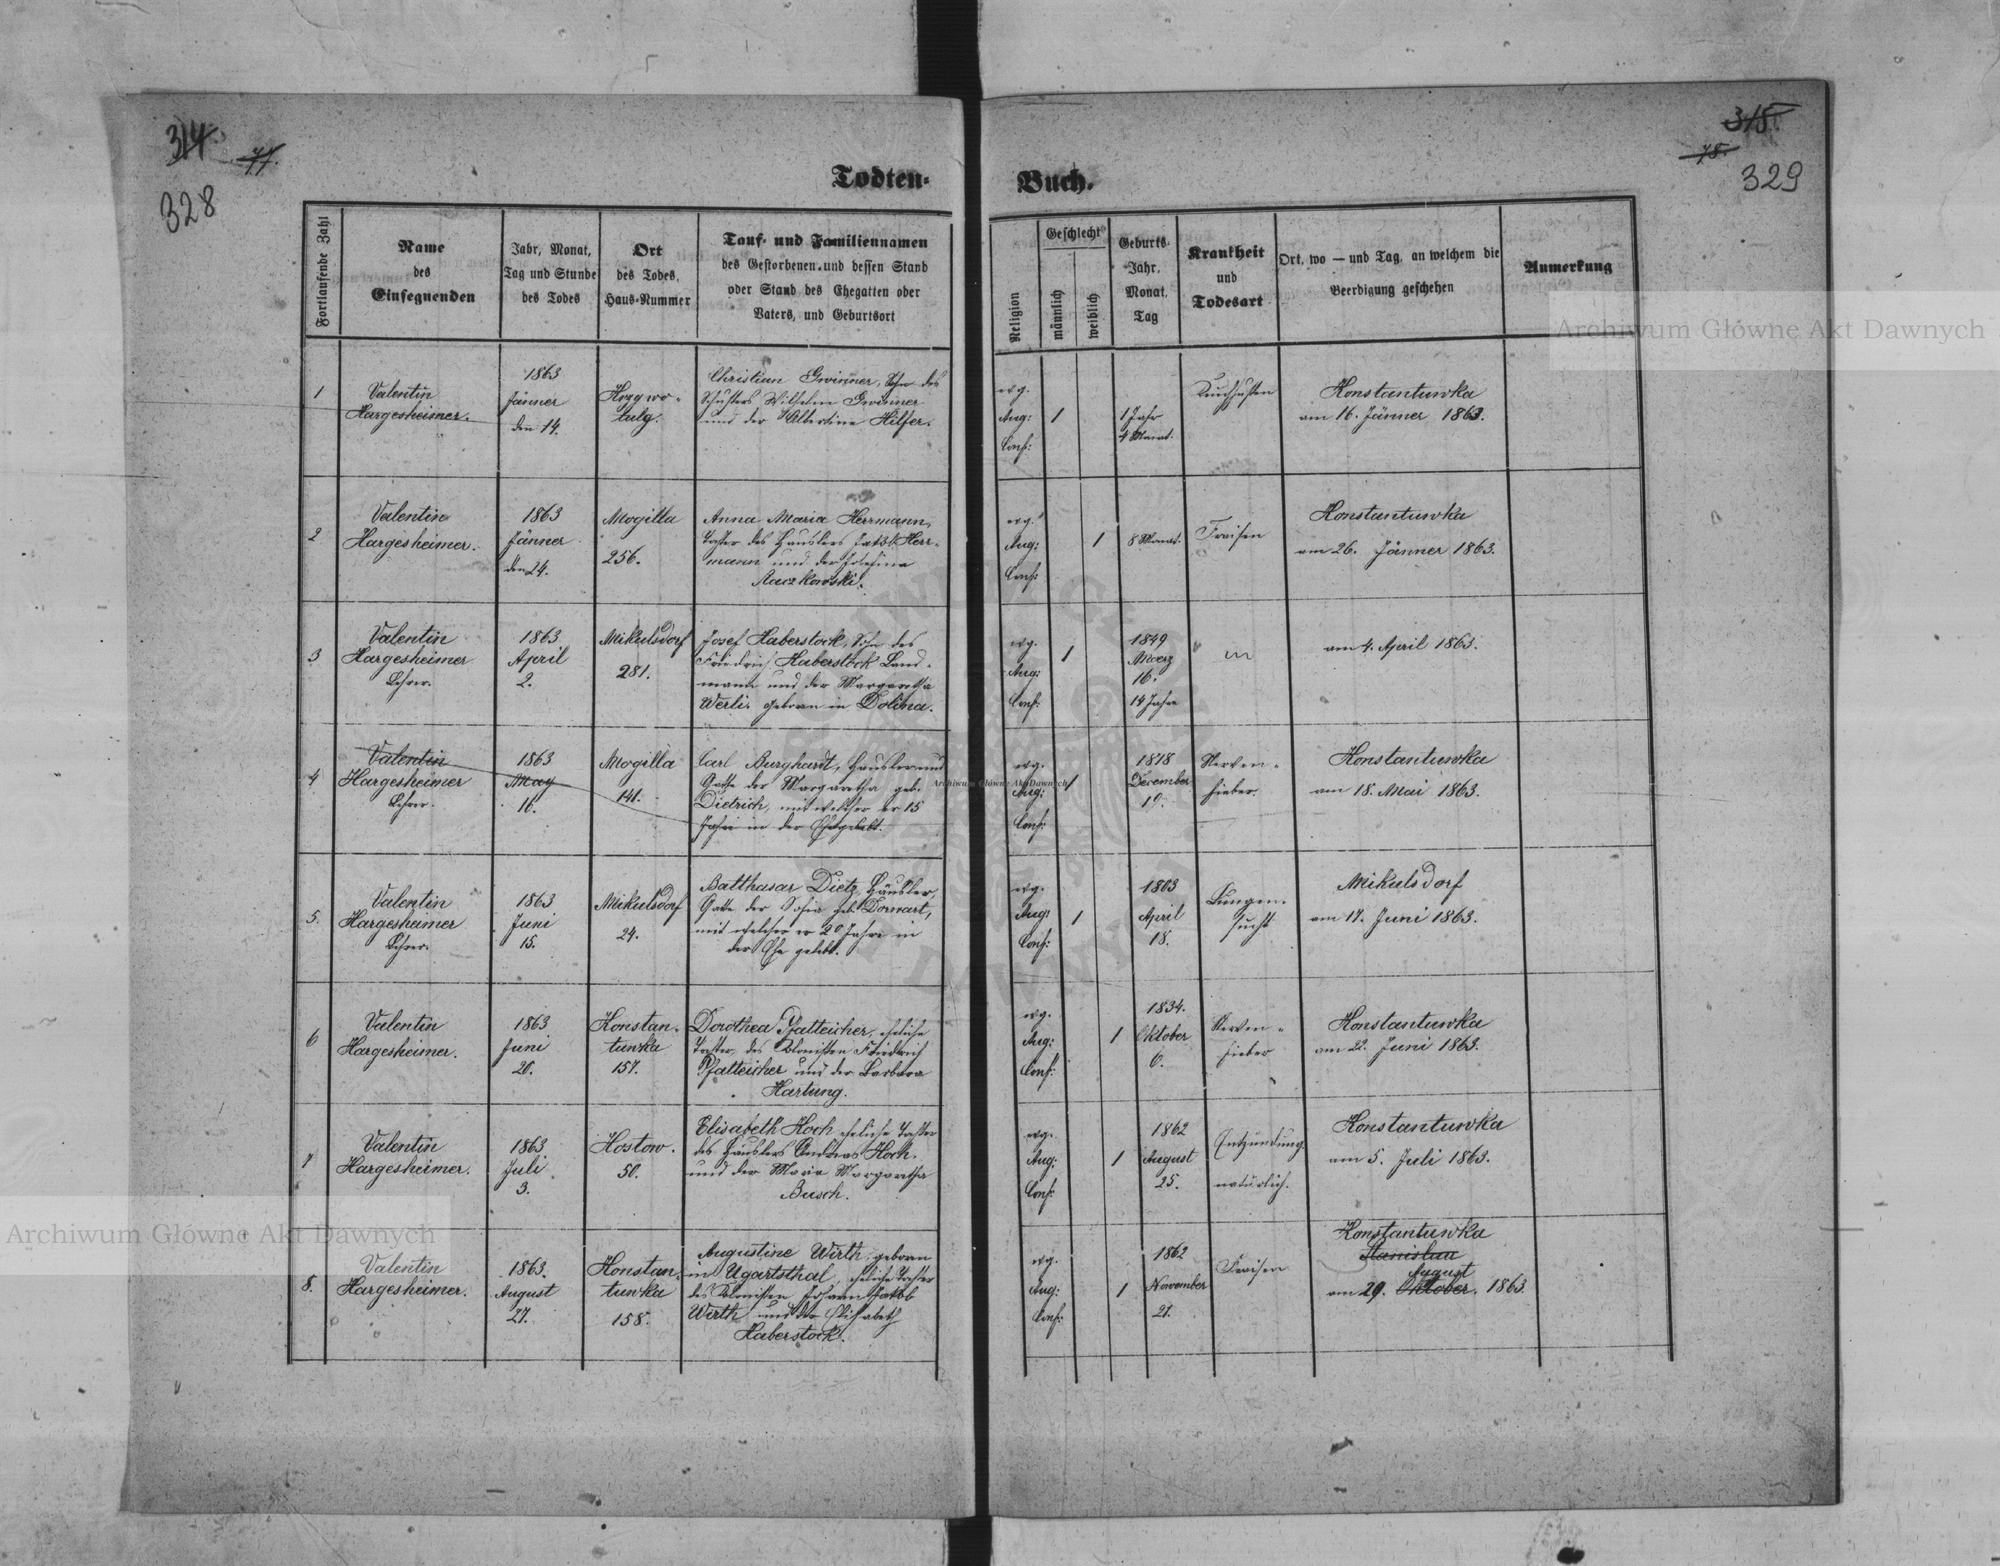 314.
77.
328
315.
78.
329
Todten-
Buch.
Fortlaufende Zahl
Name
des
Einsegnenden
Jahr, Monat,
Tag und Stunde
des Todes
Ort
des Todes,
Haus-Nummer
Tauf- und Familiennamen
des Gestorbenen und dessen Stand
oder Stand des Ehegatten oder
Vaters, und Geburtsort
Religion
Geschlecht
männlich
weiblich
Geburts-
Jahr,
Monat,
Tag
Krankheit
und
Todesart
Ort, wo — und Tag, an welchem die
Beerdigung geschehen
Anmerkung
1
Valentin
Hargesheimer.
1863
Jänner
den 14.
Christian Gwinner, Sohn des
Schusters Wilhelm Gwinner
und der Albertine Hilfer.
evg.
Aug:
Conf:
1
1 Jahr
4 Monat.
Konstantuwka
am 16. Jänner 1863.
2
Valentin
Hargesheimer.
1863
Jänner
den 24.
Mogilla
256.
Anna Maria Herrmann,
Tochter des Häuslers Jakob Herr-
mann und der Josefina
evg.
Aug:
Conf:
1
8 Monat.
Fraisen
Konstantuwka
am 26. Jänner 1863.
3
Valentin
Hargesheimer
Lehrer.
1863
April
2.
Mikulsdorf
281.
Josef Haberstock, Sohn des
Friedrich Haberstock Land-
manns und der Margaretha
Werli. geboren in Dolina.
evg.
Aug:
Conf:
1
1849
Maerz
16.
14 Jahre
am 4. April 1863.
4
Valentin
Hargesheimer
Lehrer.
1863
May
16.
Mogilla
141.
Carl Burghardt, Häusler und
Gatte der Margaretha geb.
Dietrich, mit welcher er 15
Jahre in der Ehe gelebt.
evg.
Aug:
Conf:
1
1818
December
19.
Nerven-
fieber.
Konstantuwka
am 18. Mai 1863.
5.
Valentin
Hargesheimer
Lehrer.
1863
Juni
15.
Mikulsdorf
24.
Balthasar Dietz, Häusler,
Gatte der Sofia geb. Dorwart,
mit welcher er 20 Jahre in
der Ehe gelebt.
evg.
Aug:
Conf:
1
1803
April
18.
Lungen-
sucht
Mikulsdorf
am 17. Juni 1863.
6
Valentin
Hargesheimer.
1863
Juni
20.
Konstan-
tuwka
157.
Dorothea Pfalteicher, eheliche
Tochter des Kolonisten Friedrich
Pfalteicher und der Barbara
Hartung.
evg.
Aug:
Conf:
1
1834.
Oktober
6.
Nerven-
fieber
Konstantuwka
am 22. Juni 1863.
7
Valentin
Hargesheimer.
1863
Juli
3.
Hostow.
50.
Elisabeth Koch eheliche Tochter
des Häuslers Andreas Koch.
und der Maria Margaretha
Busch.
evg.
Aug:
Conf:
1
1862
August
25.
Entzündung.
natürlich.
Konstantuwka
am 5. Juli 1863.
8.
Valentin
Hargesheimer.
1863.
August
27.
Konstan-
tuwka
158.
Augustine Wirth, geboren
in Ugartsthal, eheliche Tochter
des Kolonisten Johann Jakob
Wirth und der Elisabeth
Haberstock.
evg.
Aug:
Conf:
1
1862
November
21.
Fraisen
Konstantuwka
Stanislau
August
am 29. Oktober. 1863.
Archiwum Główne Akt Dawnych
Archiwum Główne Akt Dawnych
Archiwum Główne Akt Dawnych